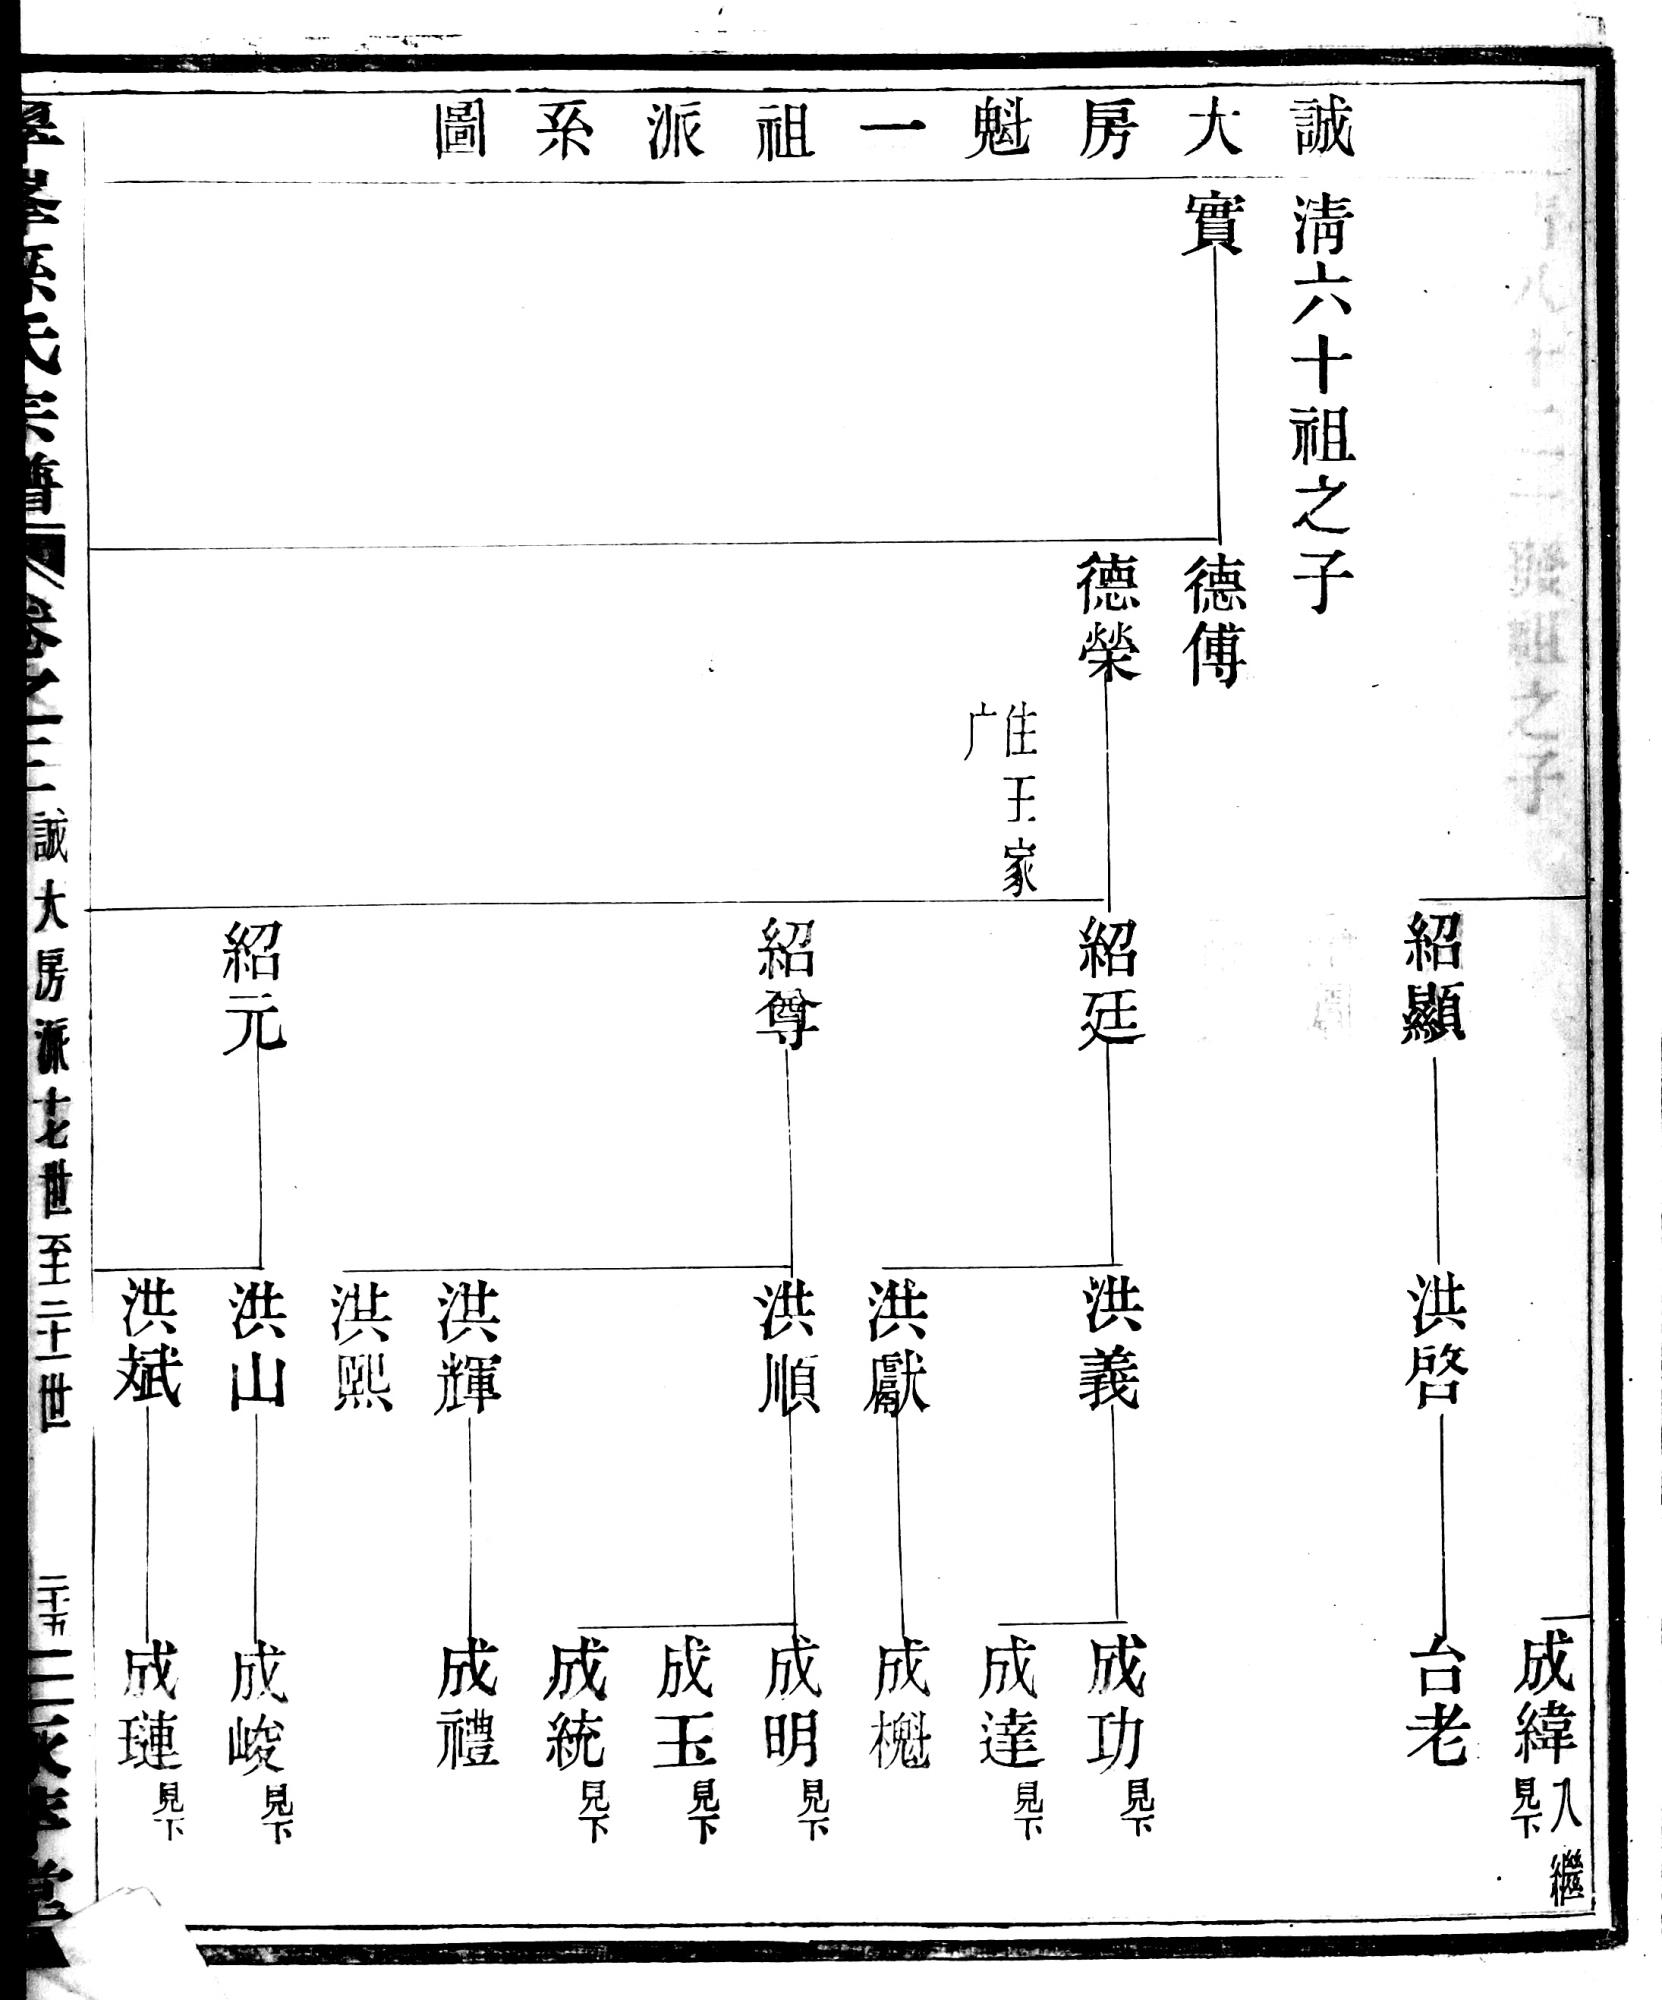 誠大房魁一祖派系圖
清六十祖之子
實
德傅
德榮
住王家
广
紹顯
紹廷
紹尊
紹元
洪啓
洪義
洪獻
洪順
洪輝
洪熙
洪山
洪斌
成緯
入繼
見下
台老
成功
見下
成達
見下
成槐
成明
見下
成玉
見下
成統
見下
成禮
成峻
見下
成璉
見下
氏宗譜
卷之三
誠大房派十七世至二十一世
二十五